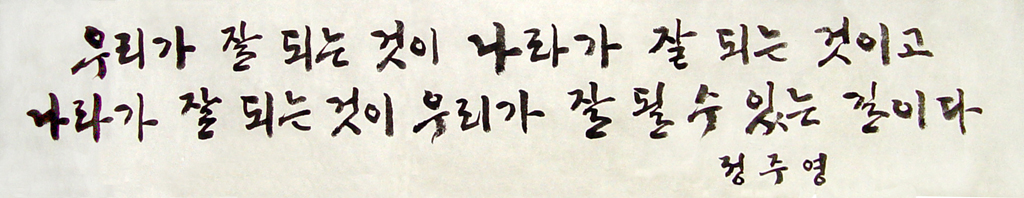 우리가 잘 되는 것이 나라가 잘 되는 것이고
나라가 잘 되는 것이 우리가 잘 될 수 있는 길이다
정주영